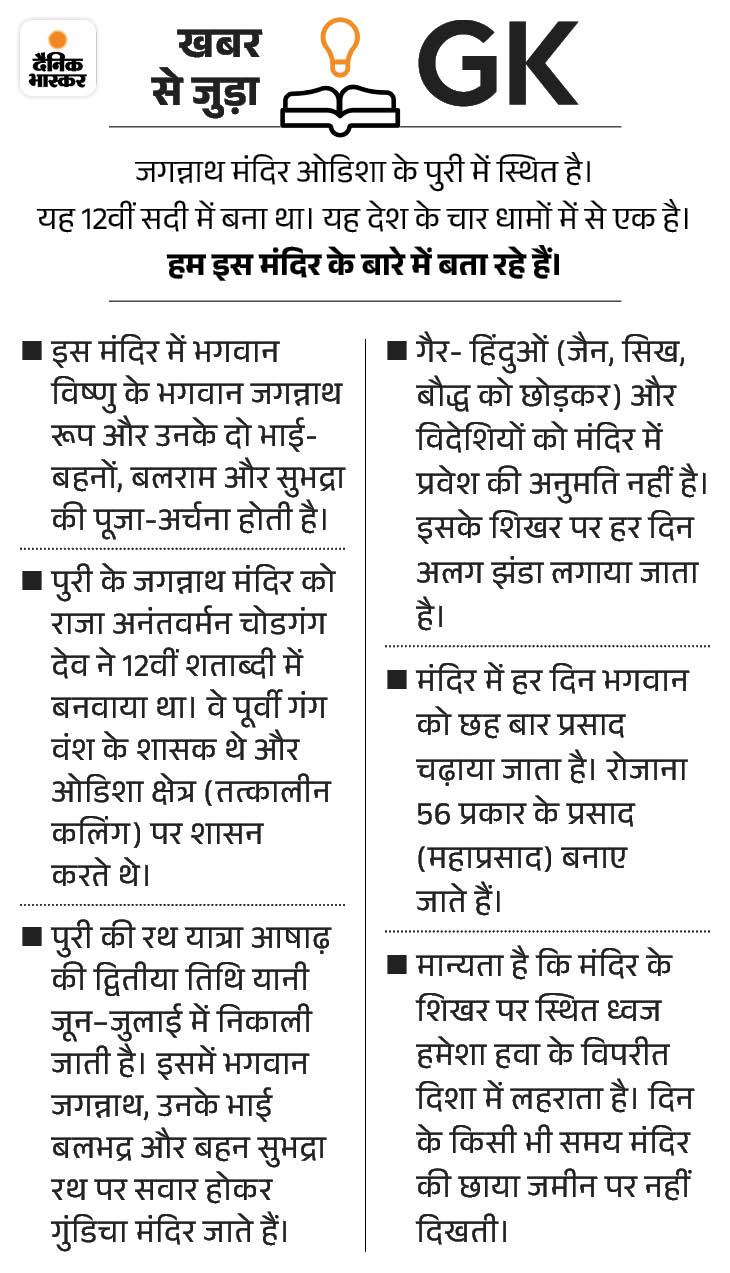 दैनिक
भास्कर
खबर
से जुड़ा
GK
जगन्नाथ मंदिर ओडिशा के पुरी में स्थित है।
यह 12वीं सदी में बना था। यह देश के चार धामों में से एक है।
हम इस मंदिर के बारे में बता रहे हैं।
■ इस मंदिर में भगवान
विष्णु के भगवान जगन्नाथ
रूप और उनके दो भाई-
बहनों, बलराम और सुभद्रा
की पूजा-अर्चना होती है।
■ पुरी के जगन्नाथ मंदिर को
राजा अनंतवर्मन चोडगंग
देव ने 12वीं शताब्दी में
बनवाया था। वे पूर्वी गंग
वंश के शासक थे और
ओडिशा क्षेत्र (तत्कालीन
कलिंग) पर शासन
करते थे।
■ पुरी की रथ यात्रा आषाढ़
की द्वितीया तिथि यानी
जून–जुलाई में निकाली
जाती है। इसमें भगवान
जगन्नाथ, उनके भाई
बलभद्र और बहन सुभद्रा
रथ पर सवार होकर
गुंडिचा मंदिर जाते हैं।
■ गैर- हिंदुओं (जैन, सिख,
बौद्ध को छोड़कर) और
विदेशियों को मंदिर में
प्रवेश की अनुमति नहीं है।
इसके शिखर पर हर दिन
अलग झंडा लगाया जाता
है।
■ मंदिर में हर दिन भगवान
को छह बार प्रसाद
चढ़ाया जाता है। रोजाना
56 प्रकार के प्रसाद
(महाप्रसाद) बनाए
जाते हैं।
■ मान्यता है कि मंदिर के
शिखर पर स्थित ध्वज
हमेशा हवा के विपरीत
दिशा में लहराता है। दिन
के किसी भी समय मंदिर
की छाया जमीन पर नहीं
दिखती।